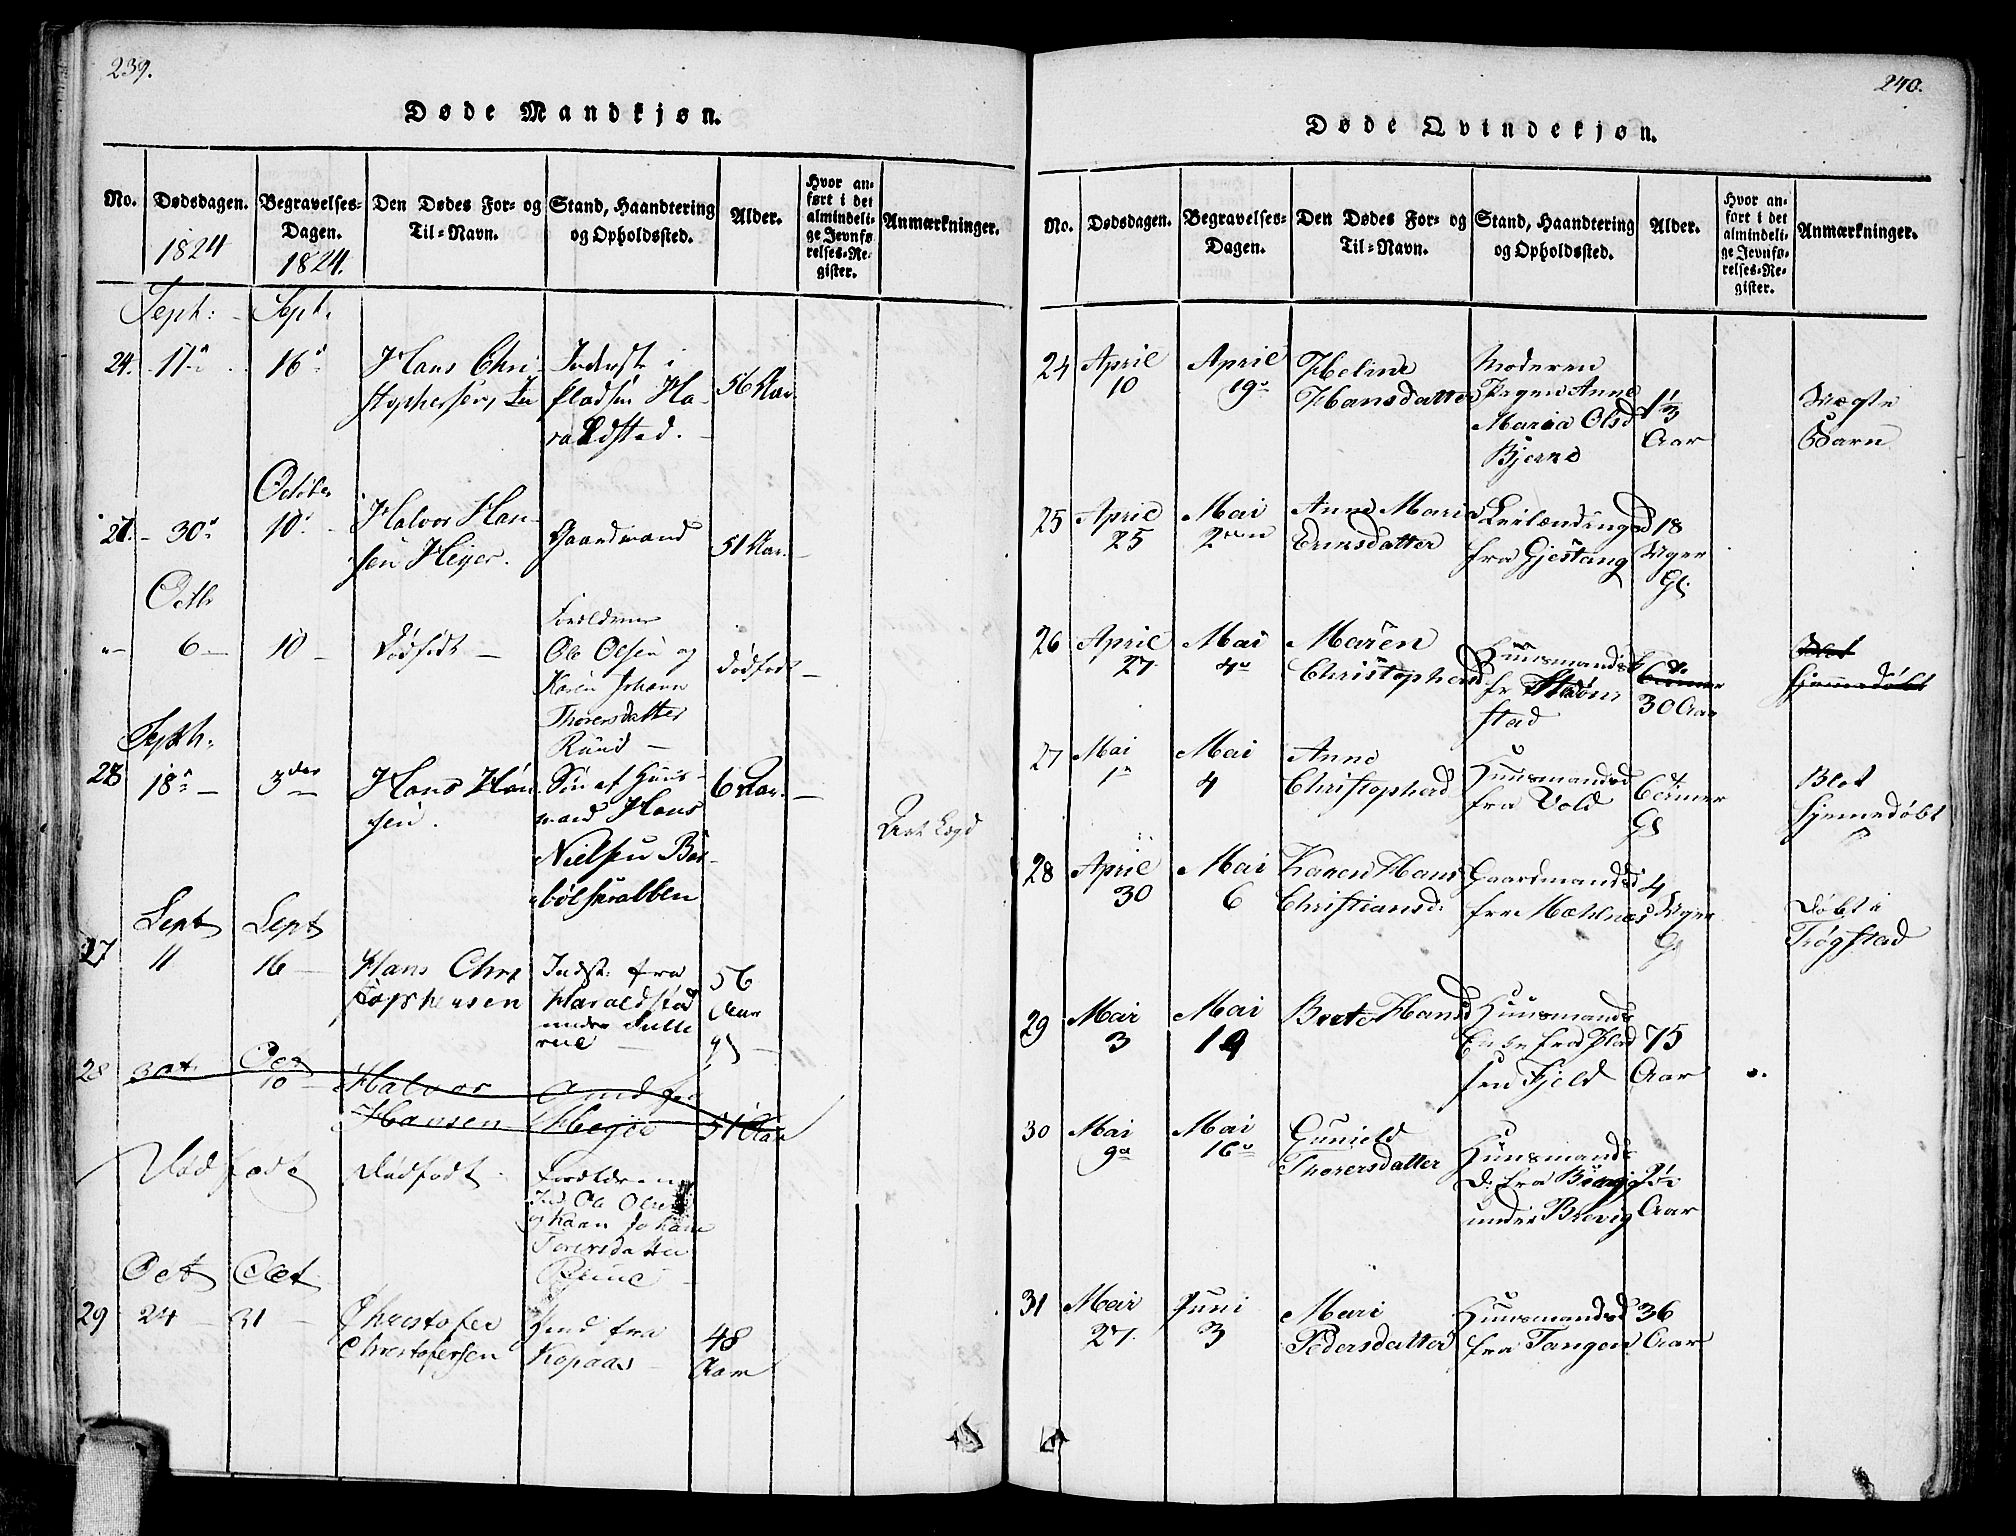 239.
Døde Mandkjøn.
No.
Dødsdagen.
1824
Begravelses-
Dagen.
1824.
Den Dødes For- og
Til-Navn.
Stand, Haandtering
og Opholdssted.
Alder.
Hvor an-
ført i det
almindeli-
ge Jevnfø-
relses-Re-
gister.
Anmærkninger.
Septr:
Septr.
24.
11
16
Hans Chri-
stophersen,
Inderste i
pladsen Ha-
raldsted.
56 Aar
Octbr
30
10
Halvor Han-
sen Heyer.
Gaardmand
51 Aar.
Octb
6
10
Dødfødt
Forældrene
Ole Olsen og
Karen Johanne
Thorersdatter
Rund
dødfødt
Septh.
28
18
3
Hans Han-
sen.
Søn af Huus-
mand Hans
Nielsen Bar-
bølskrabben
6 Aar.
Sept
Sept
27
11
16
Hans Chri
stophersen
Indst: fra
Haraldstad
under
56
Aar
gl
28
30
Oct
10
Halvor
Hansen
Heyer
51 Aar
Dødfødt
Dødfødt
Forældrene
Ind. Ole Olsen
og Karen Johane
Torersdatter
Oct
Oct
29
24
31
Christofer
Christofersen
fra
Kopaas
48
Aar
240.
Døde Qvindekjøn.
No.
Dødsdagen.
Begravelses-
Dagen.
Den Dødes For- og
Til-Navn.
Stand, Haandtering
og Opholdssted.
Alder.
Hvor an-
ført i det
almindeli-
ge Jevnfø-
relses-Re-
gister.
Anmærkninger.
24
April
10
April
19
Helene
Hansdatter
Moderen
Pigen Anne
Maria Olsd
Bjerne
1 1/3
Aar
Uægte
Barn
25
April
25
Mai
2den
Anne Maria
Leilændingsd
fra Gjestang
18
Uger
Gl.
26
April
27
Mai
4
Maren
Christophersd
Huusmandsk
fr Strøm
stad
30 Aar
Blot
hjemmedøbt
27
Mai
1
Mai
4
Anne
Christophersd
Huusmandsd
fra Vold
6 timer
Gl
Blot
hjemmedøbt
28
April
30
Mai
6
Karen Hans
Christiansd:
Gaardmandsd
fra Mæhlnæs
4
Uger
Gl
Døbt i
Trøgstad
29
Mai
3
Mai
19
Berte Hansd
Huusmands
Enke fra Plad
sen Fjeld
75
Aar
30
Mai
9
Mai
16
Gunild
Thorersdatter
Huusmands
D: fra
under Brevig
Aar
31
Mai
27
Juni
3
Mari
Pedersdatter
Huusmandsd
fra Tangen
36
Aar